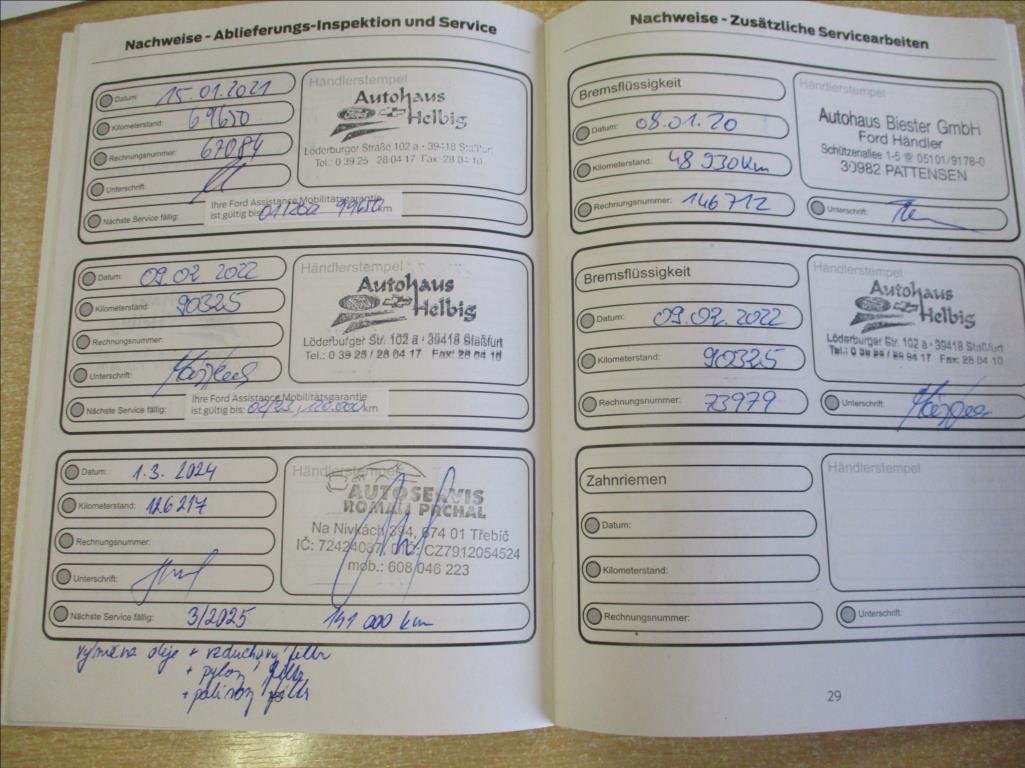 Nachweise - Ablieferungs-Inspektion und Service
Datum: 15.01.2021
Kilometerstand: 69650
Rechnungsnummer: 67084
Unterschrift:
Nächste Service fällig: 01/2022 99650 km
Ihre Ford Assistance Mobilitätsgarantie
ist gültig bis:
Händlerstempel
Autohaus
Ford Helbig
Löderburger Straße 102 a · 39418 Staßfurt
Tel.: 0 39 25 28 04 17 Fax 28 04 10
Datum: 09.02.2022
Kilometerstand: 90325
Rechnungsnummer:
Unterschrift:
Nächste Service fällig: 02/23, 120.000 km
Ihre Ford Assistance Mobilitätsgarantie
ist gültig bis:
Händlerstempel
Autohaus
Helbig
Löderburger Str. 102 a · 39418 Staßfurt
Tel.: 0 39 25 / 28 04 17 Fax: 28 04 10
Datum: 1.3. 2024
Kilometerstand: 126217
Rechnungsnummer:
Unterschrift:
Nächste Service fällig: 3/2025 141 000 km
Händlerstempel
AUTOSERVIS
ROMAN PRCHAL
Na Nivkách 394, 674 01 Třebíč
IČ: 72424087, DIČ: CZ7912054524
mob.: 608 046 223
výměna oleje + vzduchový filtr
+ pylový filtr
+ palivový filtr
Nachweise - Zusätzliche Servicearbeiten
Bremsflüssigkeit
Datum: 08.01.20
Kilometerstand: 48 930 km
Rechnungsnummer: 146712
Händlerstempel
Autohaus Biester GmbH
Ford Händler
Schützenallee 1-5 ☎ 05101/9178-0
30982 PATTENSEN
Unterschrift:
Bremsflüssigkeit
Datum: 09.02.2022
Kilometerstand: 90325
Rechnungsnummer: 73979
Händlerstempel
Autohaus
Helbig
Löderburger Str. 102 a · 39418 Staßfurt
Tel.: 0 39 25 / 28 04 17 Fax: 28 04 10
Unterschrift:
Zahnriemen
Datum:
Kilometerstand:
Rechnungsnummer:
Händlerstempel
Unterschrift:
29